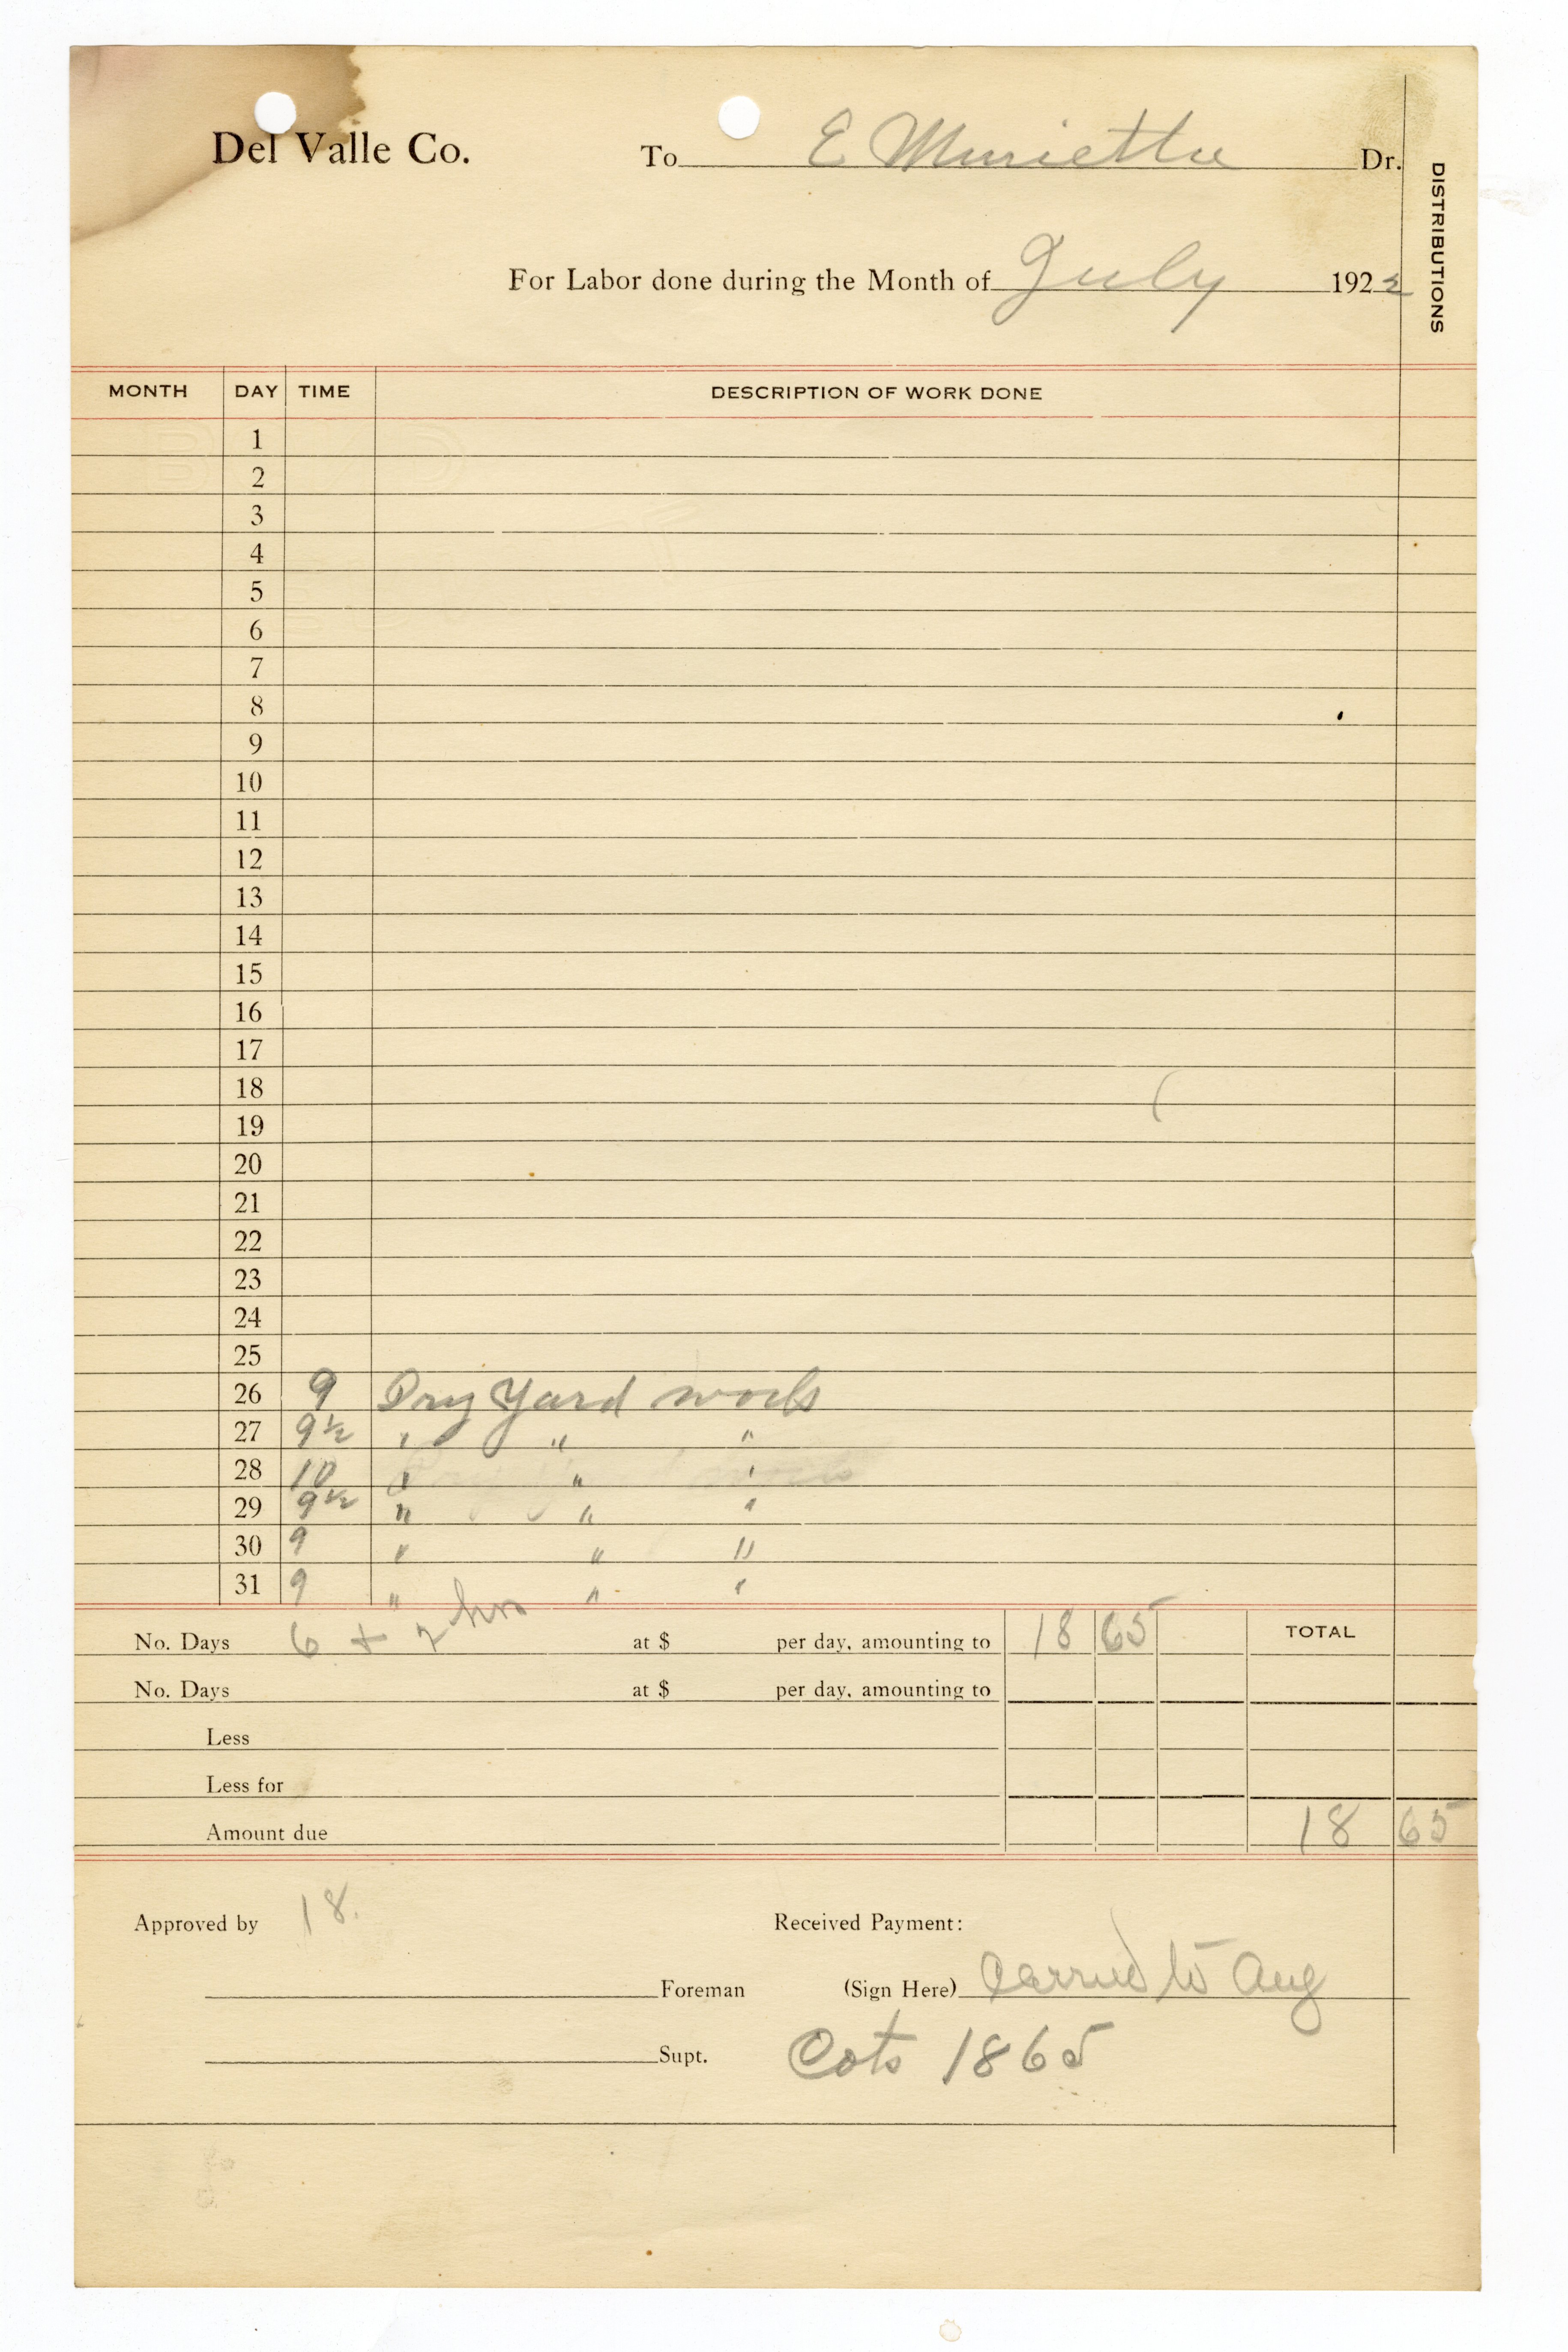 Del Valle Co. To E Murietta Dr.
DISTRIBUTIONS
For Labor done during the Month of July 1922
MONTH DAY TIME DESCRIPTION OF WORK DONE
1
2
3
4
5
6
7
8
9
10
11
12
13
14
15
16
17
18
19
20
21
22
23
24
25
26 9 Dry Yard work
27 9½ " " "
28 10 " " "
29 9½ " " "
30 9 " " "
31 9 " " "
No. Days 6 + 2 hrs at $ per day, amounting to 18 65 TOTAL
No. Days at $ per day, amounting to
Less
Less for
Amount due 18 65
Approved by 18. Received Payment:
Foreman (Sign Here) Carried to Aug
Supt. Cots 1865